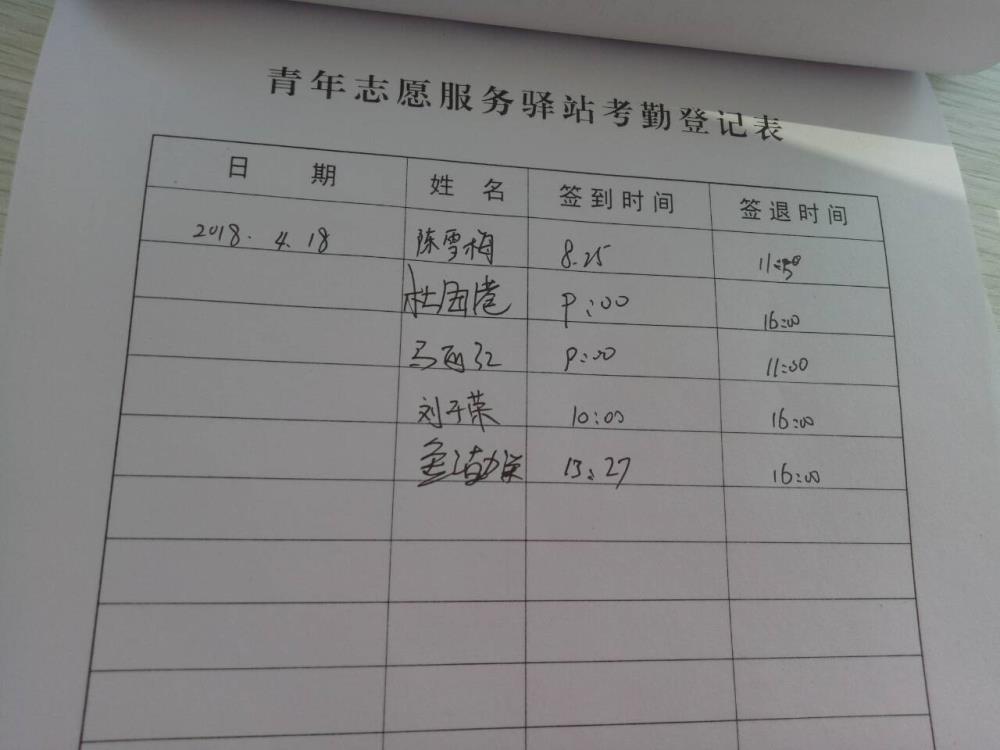 青年志愿服务驿站考勤登记表
日 期 姓 名 签到时间 签退时间
2018.4.18 陈雪梅 8.25 11:50
16:00
9:00
9:00 11:00
刘子荣 10:00 16:00
13:27 16:00